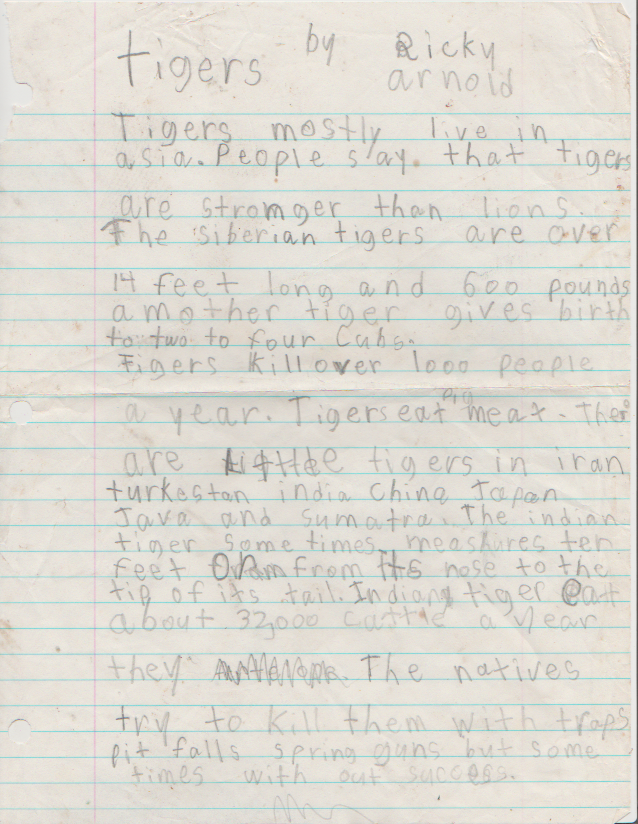 tigers by Ricky
arnold
Tigers mostly live in
asia. People say that tigers
are stronger than lions.
The siberian tigers are over
14 feet long and 600 pounds
a mother tiger gives birth
to two to four Cubs.
Tigers kill over 1000 people
a year. Tigers eat pig meat. Ther
are little tigers in iran
turkestan india China Japan
Java and sumatra. The indian
tiger some times measures ten
feet from its nose to the
tip of its tail. Indian tiger eat
about 32,000 cattle a year
they The natives
try to kill them with traps
pit falls spring guns but some
times with out success.